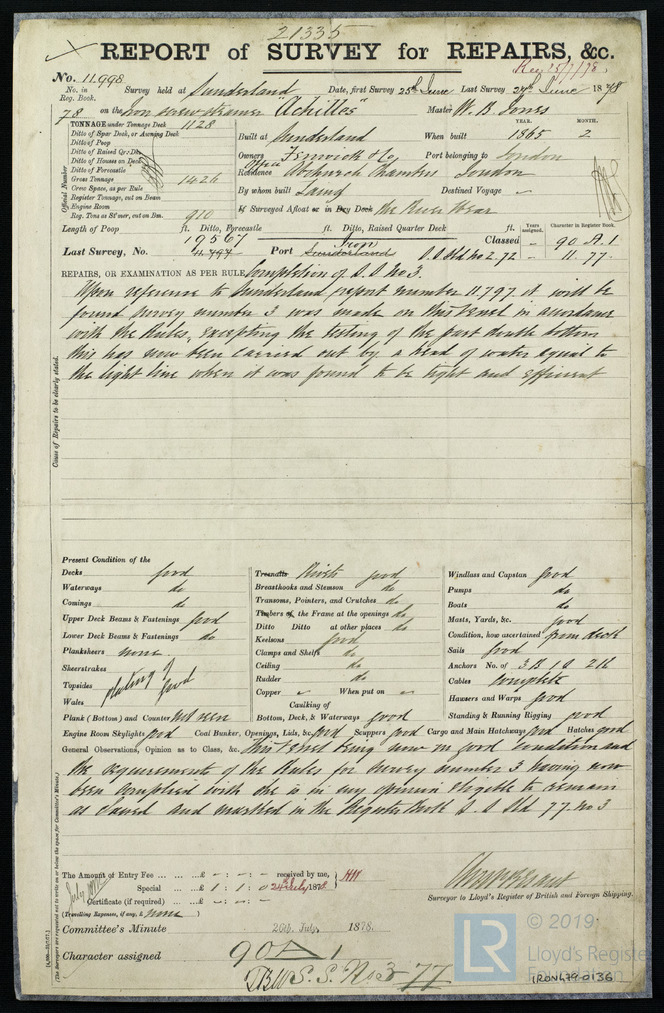 21335
REPORT of SURVEY for REPAIRS, &c.
No. 11998
No. in Reg. Book. Survey held at Sunderland Date, first Survey 25th June Last Survey 27th June 1878
78 on the Iron screw steamer "Achilles" Master W. B. Jones
TONNAGE under Tonnage Deck 1128
Ditto of Spar Deck, or Awning Deck
Ditto of Poop
Ditto of Raised Qr. Dk.
Ditto of Houses on Deck
Ditto of Forecastle
Gross Tonnage 1426
Crew Space, as per Rule
Register Tonnage, cut on Beam
Engine Room
Reg. Tons as St'mer, cut on Bm. 910
Official Number
YEAR. MONTH.
Built at Sunderland When built 1865 2
Owners Fenwick & Co Port belonging to London
Residence Office Abchurch Chambers London
By whom built Laing Destined Voyage
If Surveyed Afloat or in Dry Dock the River Wear
Length of Poop ft. Ditto, Forecastle ft. Ditto, Raised Quarter Deck ft. Years assigned. Character in Register Book.
19567 Iron Classed 90 A.1.
Last Survey, No. 11,797 Port Sunderland S.S. Sld No 2.72 11.77.
REPAIRS, OR EXAMINATION AS PER RULE Completion of S.S. No 3.
Upon reference to Sunderland report number 11.797 it will be
found survey number 3 was made on this vessel in accordance
with the Rules, excepting the testing of the part double bottom
this has now been carried out by a head of water equal to
the light line when it was found to be tight and efficient
Cause of Repairs to be clearly stated.
Present Condition of the
Decks good
Waterways do
Comings do
Upper Deck Beams & Fastenings good
Lower Deck Beams & Fastenings do
Planksheers none
Sheerstrakes
Topsides plating of good
Wales
Plank (Bottom) and Counter not seen
Treenails Rivets good
Breasthooks and Stemson do
Transoms, Pointers, and Crutches do
Timbers of the Frame at the openings do
Ditto Ditto at other places do
Keelsons good
Clamps and Shelfs do
Ceiling do
Rudder do
Copper When put on
Caulking of
Bottom, Deck, & Waterways good
Windlass and Capstan good
Pumps do
Boats do
Masts, Yards, &c. good
Condition, how ascertained from deck
Sails good
Anchors No. of 3 B 1 S 2 K
Cables Complete
Hawsers and Warps good
Standing & Running Rigging good
Engine Room Skylights good Coal Bunker, Openings, Lids, &c. good Scuppers good Cargo and Main Hatchways good Hatches good
General Observations, Opinion as to Class, &c. This vessel being now in good condition and
the requirements of the Rules for survey number 3 having now
been complied with she is in my opinion eligible to remain
as classed and marked in the Register Book S.S Sld 77. No 3
The Amount of Entry Fee £ - : - : - received by me,
Special £ 1 : 1 : 0 24th July 1878
Certificate (if required) £ - : - : -
(Travelling Expenses, if any, £ none )
Surveyor to Lloyd's Register of British and Foreign Shipping.
Committee's Minute 26th July, 1878.
Character assigned 90 A 1
S.S. No 3 - 77
(The Surveyors are requested not to write on or below the space for Committee's Minute.)
© 2019
LR
Lloyd's Register
Foundation
IRON479-0136